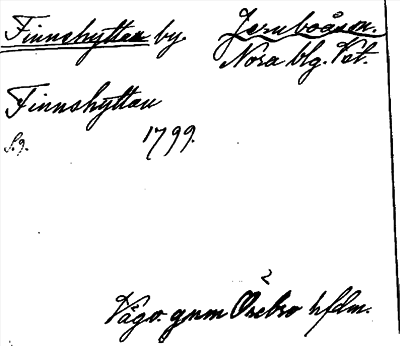 Finnshyttan by. Järnboåssn.
Nora blg. Vst.
Finnshyttan
1799.
Vägo. gnm Örebro hfdm.